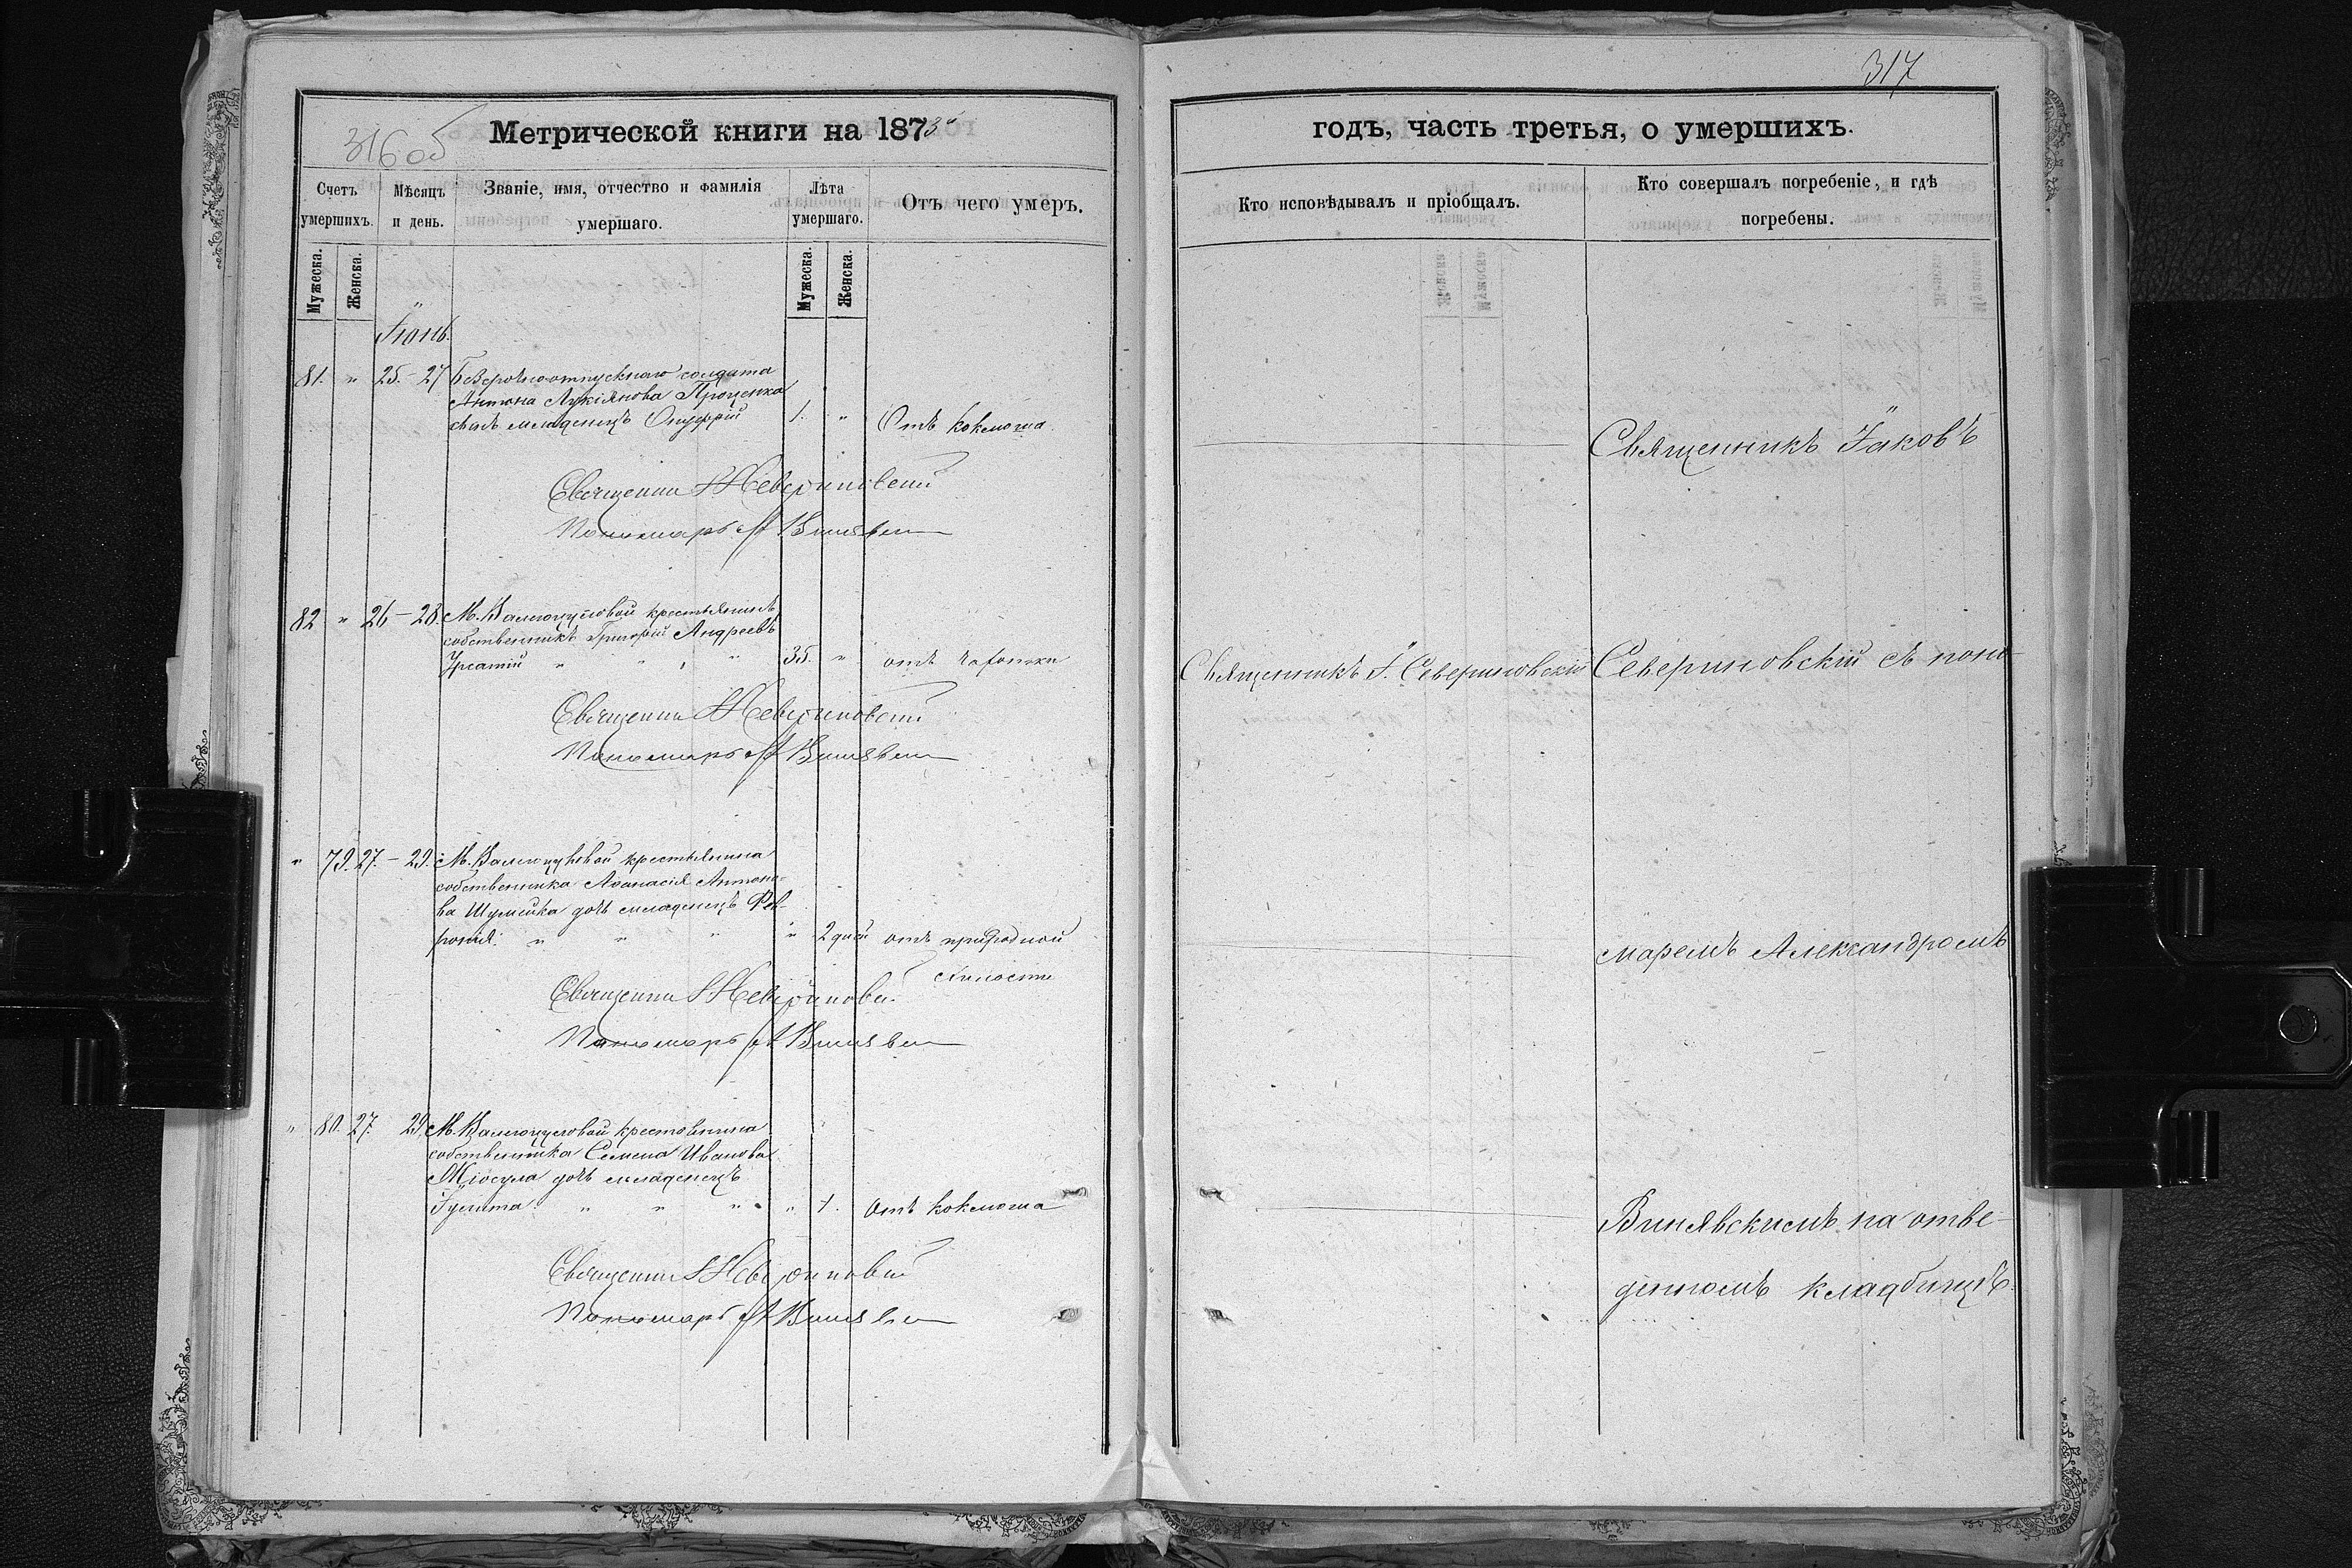 316 об
Метрической книги на 1873й
Счетъ умершихъ.
Мужеска.
Женска.
Мѣсяцъ и день.
Званіе, имя, отчество и фамилія умершаго.
Лѣта умершаго.
Мужеска.
Женска.
Отъ чего умеръ.
Іюнь.
81. " 25.-27 Безсрочноотпускнаго солдата
Антона Лукіянова Проценка
сынъ младенецъ Онуфрій 1. " Отъ коклюша.
Священникъ І Севериновскій
Пономарь А Винявскій
82 " 26-28. М. Валегоцуловой крестьянинъ
собственникъ Григорій Андреевъ
" " " 35. " отъ чахотки
Священникъ І Севериновскій
Пономарь А Винявскій
" 79. 27.-29. М. Валегоцуловой крестьянина
собственника Аѳанасія Антоно-
ва Шумейка дочь младенецъ Фев-
ронія. " " " " 2 дней отъ природной
слабости
Священникъ І Севериновскій
Пономарь А Винявскій
" 80. 27. 29. М. Валегоцуловой крестьянина
собственника Семена Иванова
дочь младенецъ
Іулита " " " " 1. Отъ коклюша
Священникъ І Севериновскій
Пономарь А Винявскій
317
годъ, часть третья, о умершихъ.
Кто исповѣдывалъ и пріобщалъ.
Кто совершалъ погребеніе, и гдѣ
погребены.
Священникъ Іаковъ
Священникъ І. Севериновскій
Севериновскій съ поно-
маремъ Александромъ
Винявскимъ на отве-
денномъ кладбищѣ.